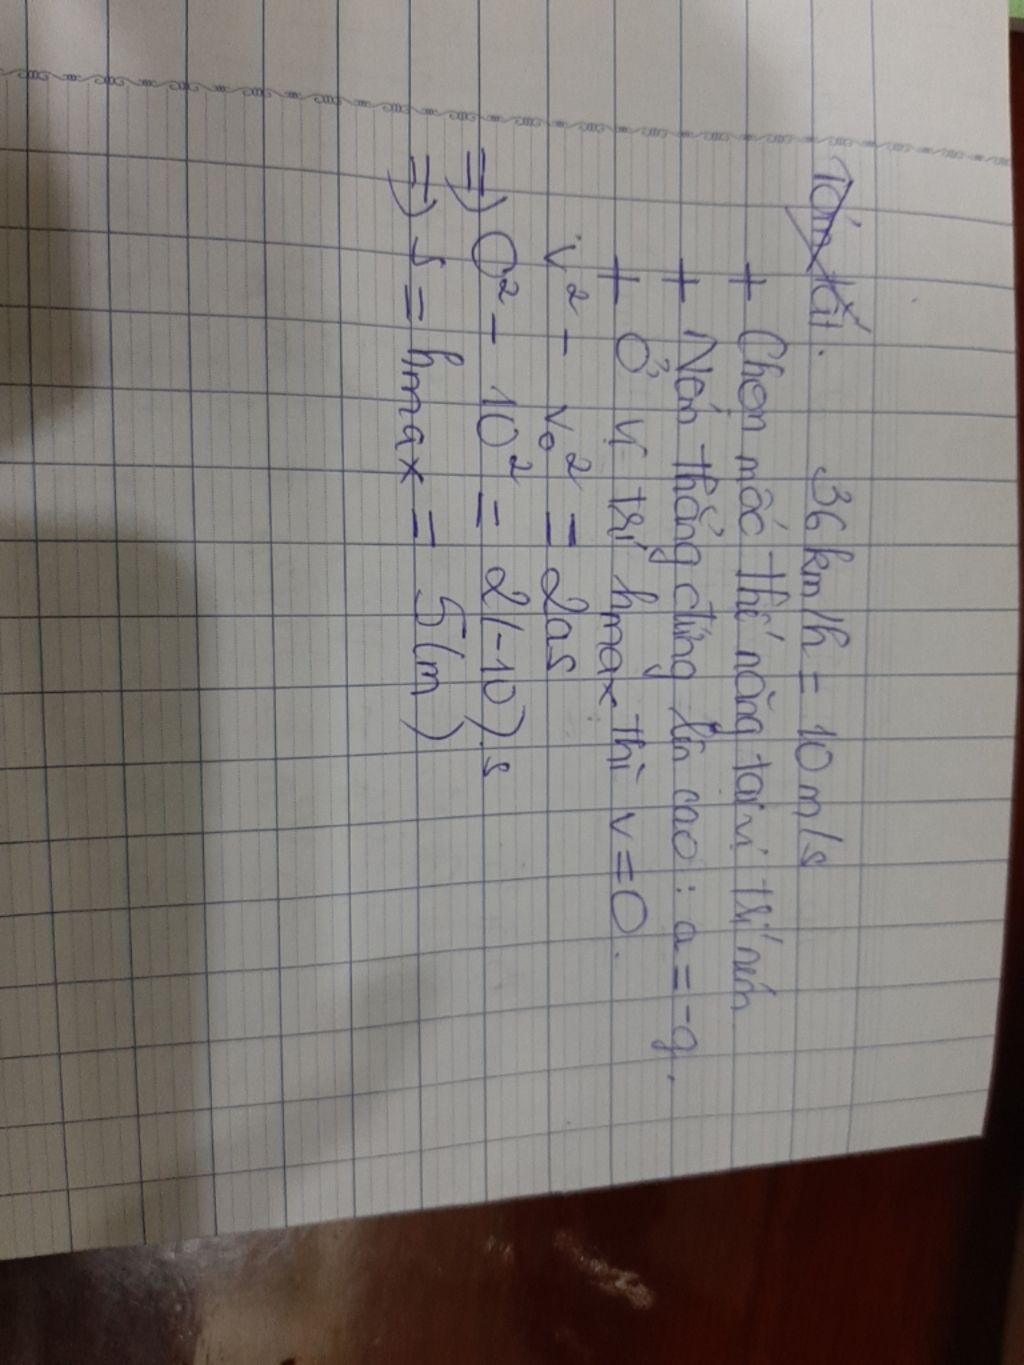 Tóm tắt. 36km/h = 10m/s
+ Chọn mốc thế năng tại vị trí ném
+ Ném thẳng đứng lên cao : a = -g.
+ Ở vị trí hmax thì v = 0.
v² - v₀² = 2as
=> 0² - 10² = 2(-10).s
=> s = hmax = 5(m)